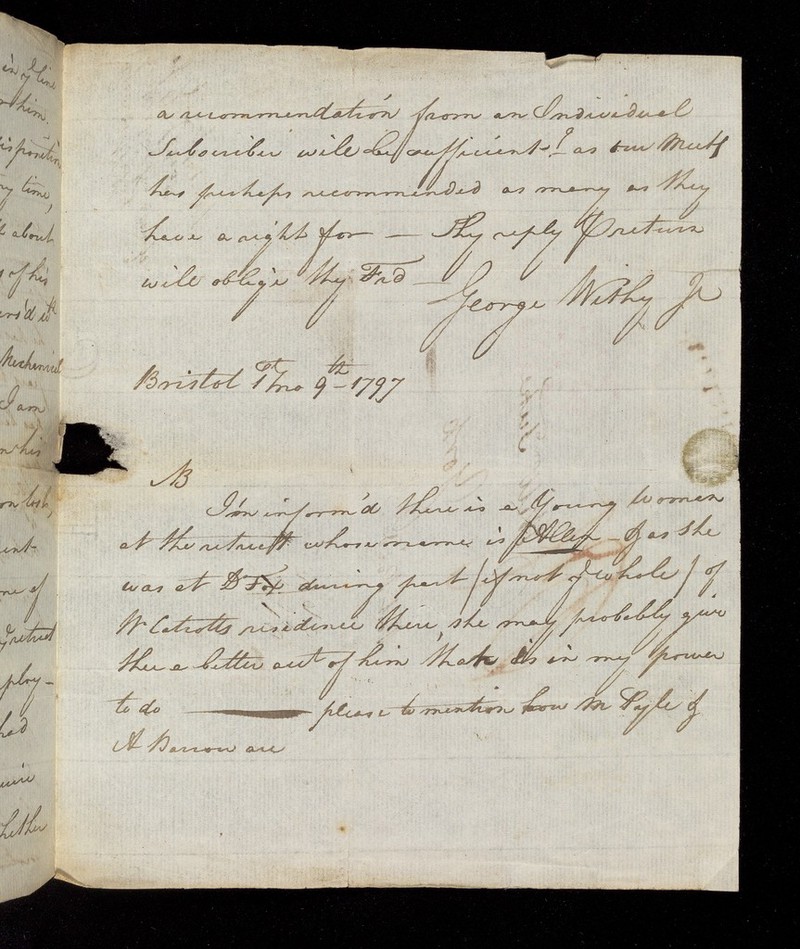 in ye line
him
disposition
ny time,
about
s of his
Mechanical
I am
in his
ent
me of
ye retreat
ploy-
had
whether
a recommendation from an Individual
Subscriber will be sufficient? - as our Meetg
has perhaps recommended as many as they
have a right for — Thy reply P return
will oblige thy Frd —
George Withy Jr
Bristol 1st mo 9th - 1797
NB
I'm inform'd there is a Young Woman
at the retreat whose name is Allen & as she
was at Dr Fox during part (if not ye whole) of
Wm residence there, she may probably give
thee a better acct of him than is in my power
to do ——— please to mention how M Pyle &
A Barrow are